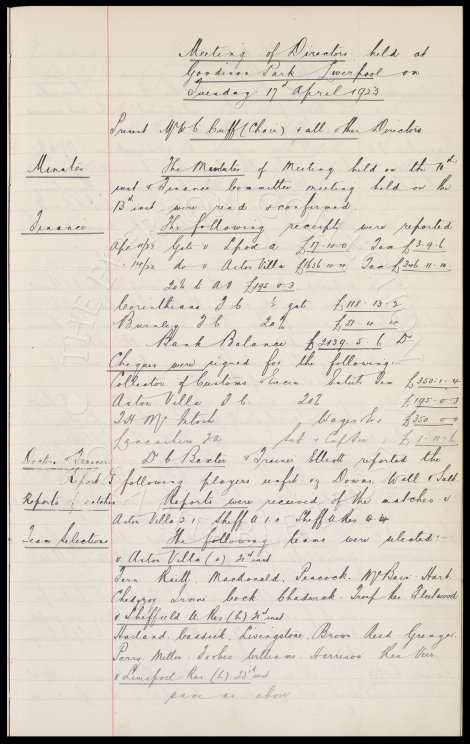 Meeting of Directors held at
Goodison Park Liverpool on
Tuesday 17th April 1923
Present Mr W C Cuff (Chair) & all other Directors
Minutes The Minutes of Meeting held on the 10th
inst & Finance Committee meeting held on the
13th inst were read & confirmed.
Finance The following receipts were reported
Apl Gate v Lpool a £17-10-0 Tax £3-9-6
" 14/23 do v Aston Villa £1636 10-4 Tax £346 11-10
20% to AV £195-0-3
Corinthians F C ½ gate £118-13-2
Burnley F C 20% £81-4-4
Bank Balance £2139.5-6 Dr
Cheques were signed for the following:-
Collector of Customs & Excise Entets Tax £350-1-4
Aston Villa F C 20% £195-0-3
T H McIntosh Wages &c £350-0-0
Lancashire FA Sub & Cup £1-11-6
Doctor & Trainers Dr C Baxter & Trainer Elliott reported the
Report following players unfit vz Downs, Wall & Salt
Reports of matches Reports were received of the matches v
Aston Villa 2-1 Sheff A 1-0 Sheff A Res 4-4
Team Selections The following teams were selected:-
v Aston Villa (a) 21st inst
Fern Raitt Macdonald Peacock McBain Hart
Chedgzoy Irvine Cock Chadwick Troup Res Fleetwood
v Sheffield U Res (h) 21st inst
Harland Caddick Livingstone Brown Reid Grainger
Parry Miller Forbes Williams Harrison Res
v Liverpool Res (h) 23rd inst
same as above